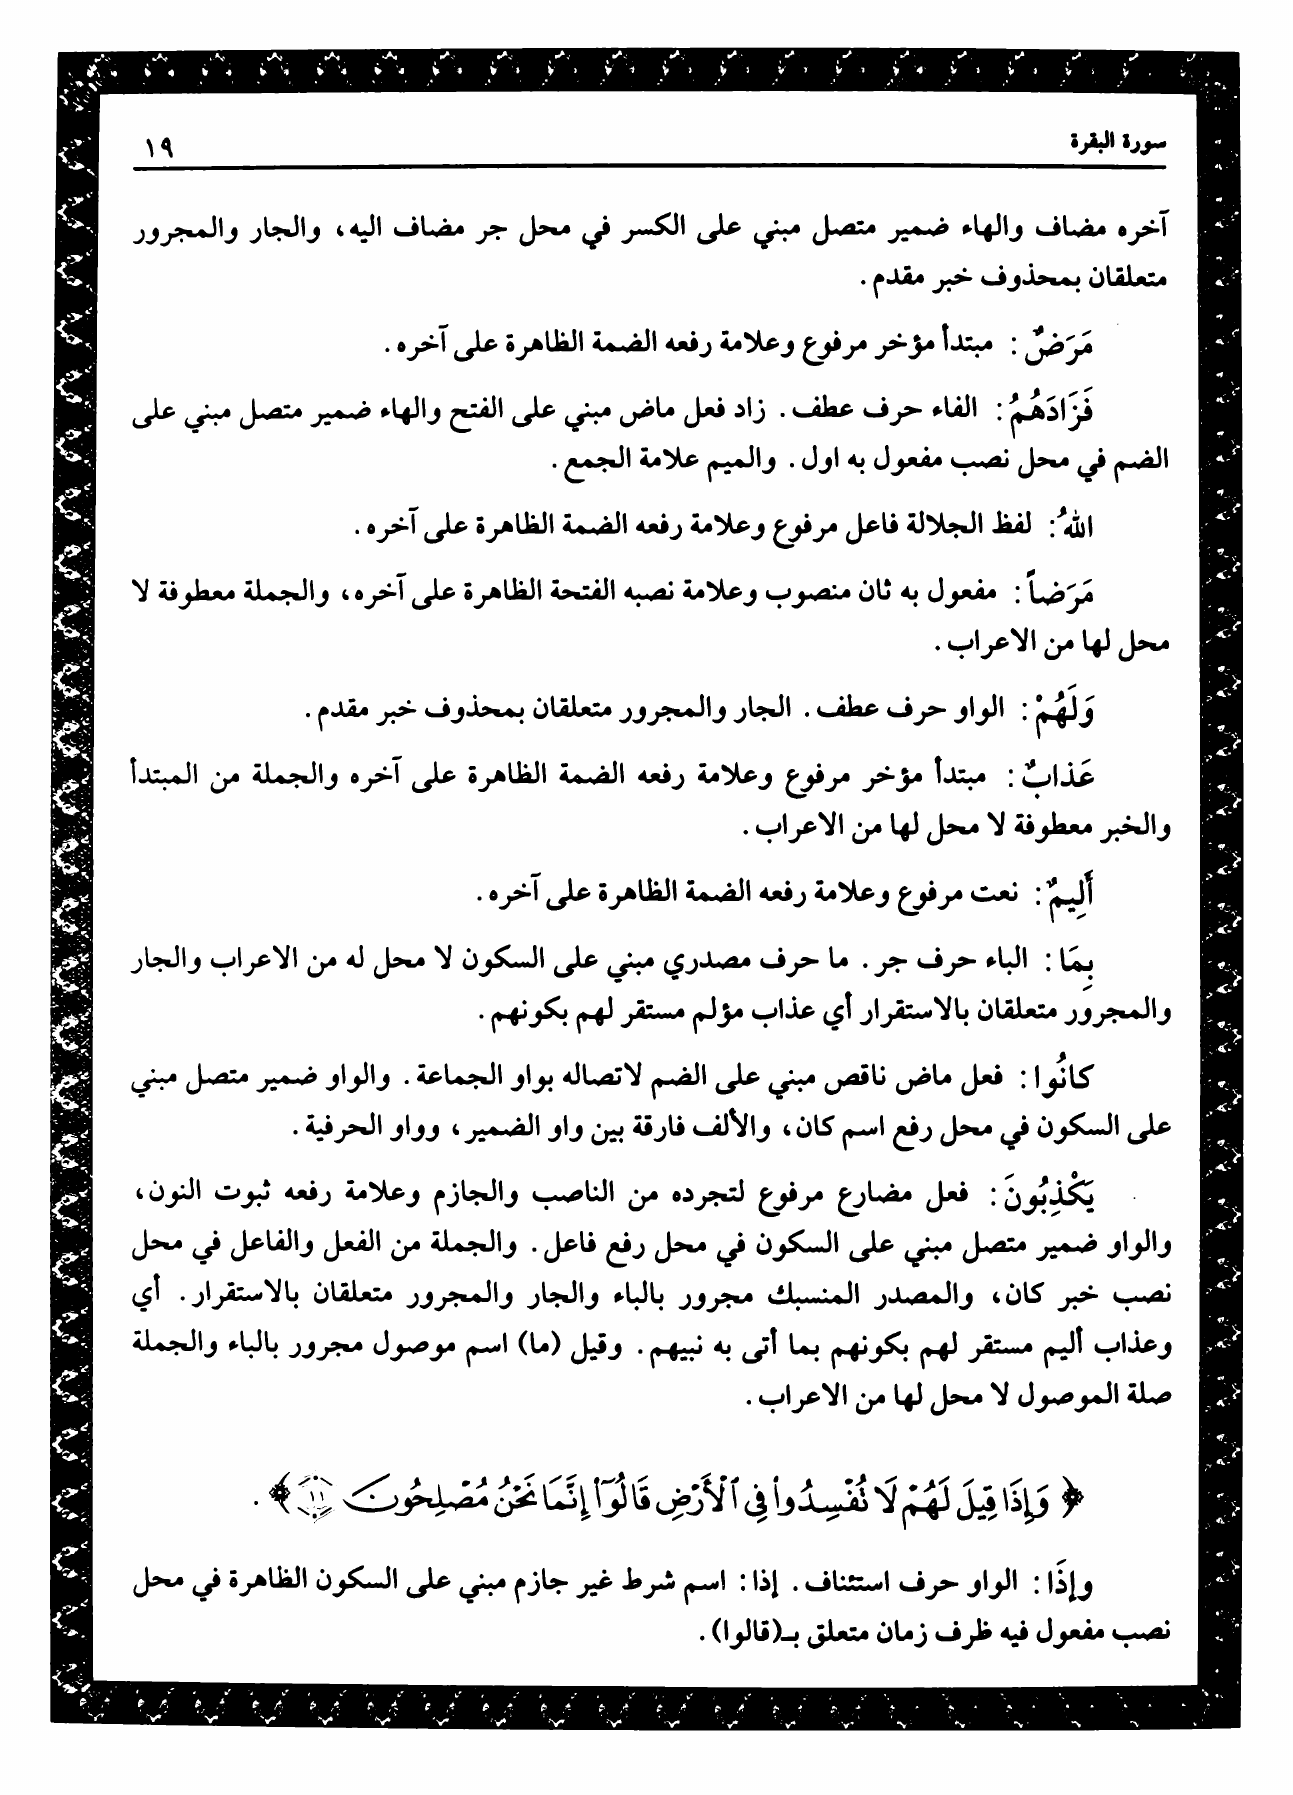 سورة البقرة ١٩
آخره مضاف والهاء ضمير متصل مبني على الكسر في محل جر مضاف اليه، والجار والمجرور
متعلقان بمحذوف خبر مقدم.
مَرَضٌ: مبتدأ مؤخر مرفوع وعلامة رفعه الضمة الظاهرة على آخره.
فَزَادَهُمُ: الفاء حرف عطف. زاد فعل ماض مبني على الفتح والهاء ضمير متصل مبني على
الضم في محل نصب مفعول به اول. والميم علامة الجمع.
اللهُ: لفظ الجلالة فاعل مرفوع وعلامة رفعه الضمة الظاهرة على آخره.
مَرَضاً: مفعول به ثان منصوب وعلامة نصبه الفتحة الظاهرة على آخره، والجملة معطوفة لا
محل لها من الاعراب.
وَلَهُمْ: الواو حرف عطف. الجار والمجرور متعلقان بمحذوف خبر مقدم.
عَذابٌ: مبتدأ مؤخر مرفوع وعلامة رفعه الضمة الظاهرة على آخره والجملة من المبتدأ
والخبر معطوفة لا محل لها من الاعراب.
أَلِيمٌ: نعت مرفوع وعلامة رفعه الضمة الظاهرة على آخره.
بِمَا: الباء حرف جر. ما حرف مصدري مبني على السكون لا محل له من الاعراب والجار
والمجرور متعلقان بالاستقرار أي عذاب مؤلم مستقر لهم بكونهم.
كانُوا: فعل ماض ناقص مبني على الضم لاتصاله بواو الجماعة. والواو ضمير متصل مبني
على السكون في محل رفع اسم كان، والألف فارقة بين واو الضمير، وواو الحرفية.
يَكْذِبُونَ: فعل مضارع مرفوع لتجرده من الناصب والجازم وعلامة رفعه ثبوت النون،
والواو ضمير متصل مبني على السكون في محل رفع فاعل. والجملة من الفعل والفاعل في محل
نصب خبر كان، والمصدر المنسبك مجرور بالباء والجار والمجرور متعلقان بالاستقرار. أي
وعذاب أليم مستقر لهم بكونهم بما أتى به نبيهم. وقيل (ما) اسم موصول مجرور بالباء والجملة
صلة الموصول لا محل لها من الاعراب.
﴿ وَإِذَا قِيلَ لَهُمْ لَا تُفْسِدُوا۟ فِى ٱلْأَرْضِ قَالُوٓا۟ إِنَّمَا نَحْنُ مُصْلِحُونَ ١١ ﴾.
وإذَا: الواو حرف استئناف. إذا: اسم شرط غير جازم مبني على السكون الظاهرة في محل
نصب مفعول فيه ظرف زمان متعلق بـ(قالوا).